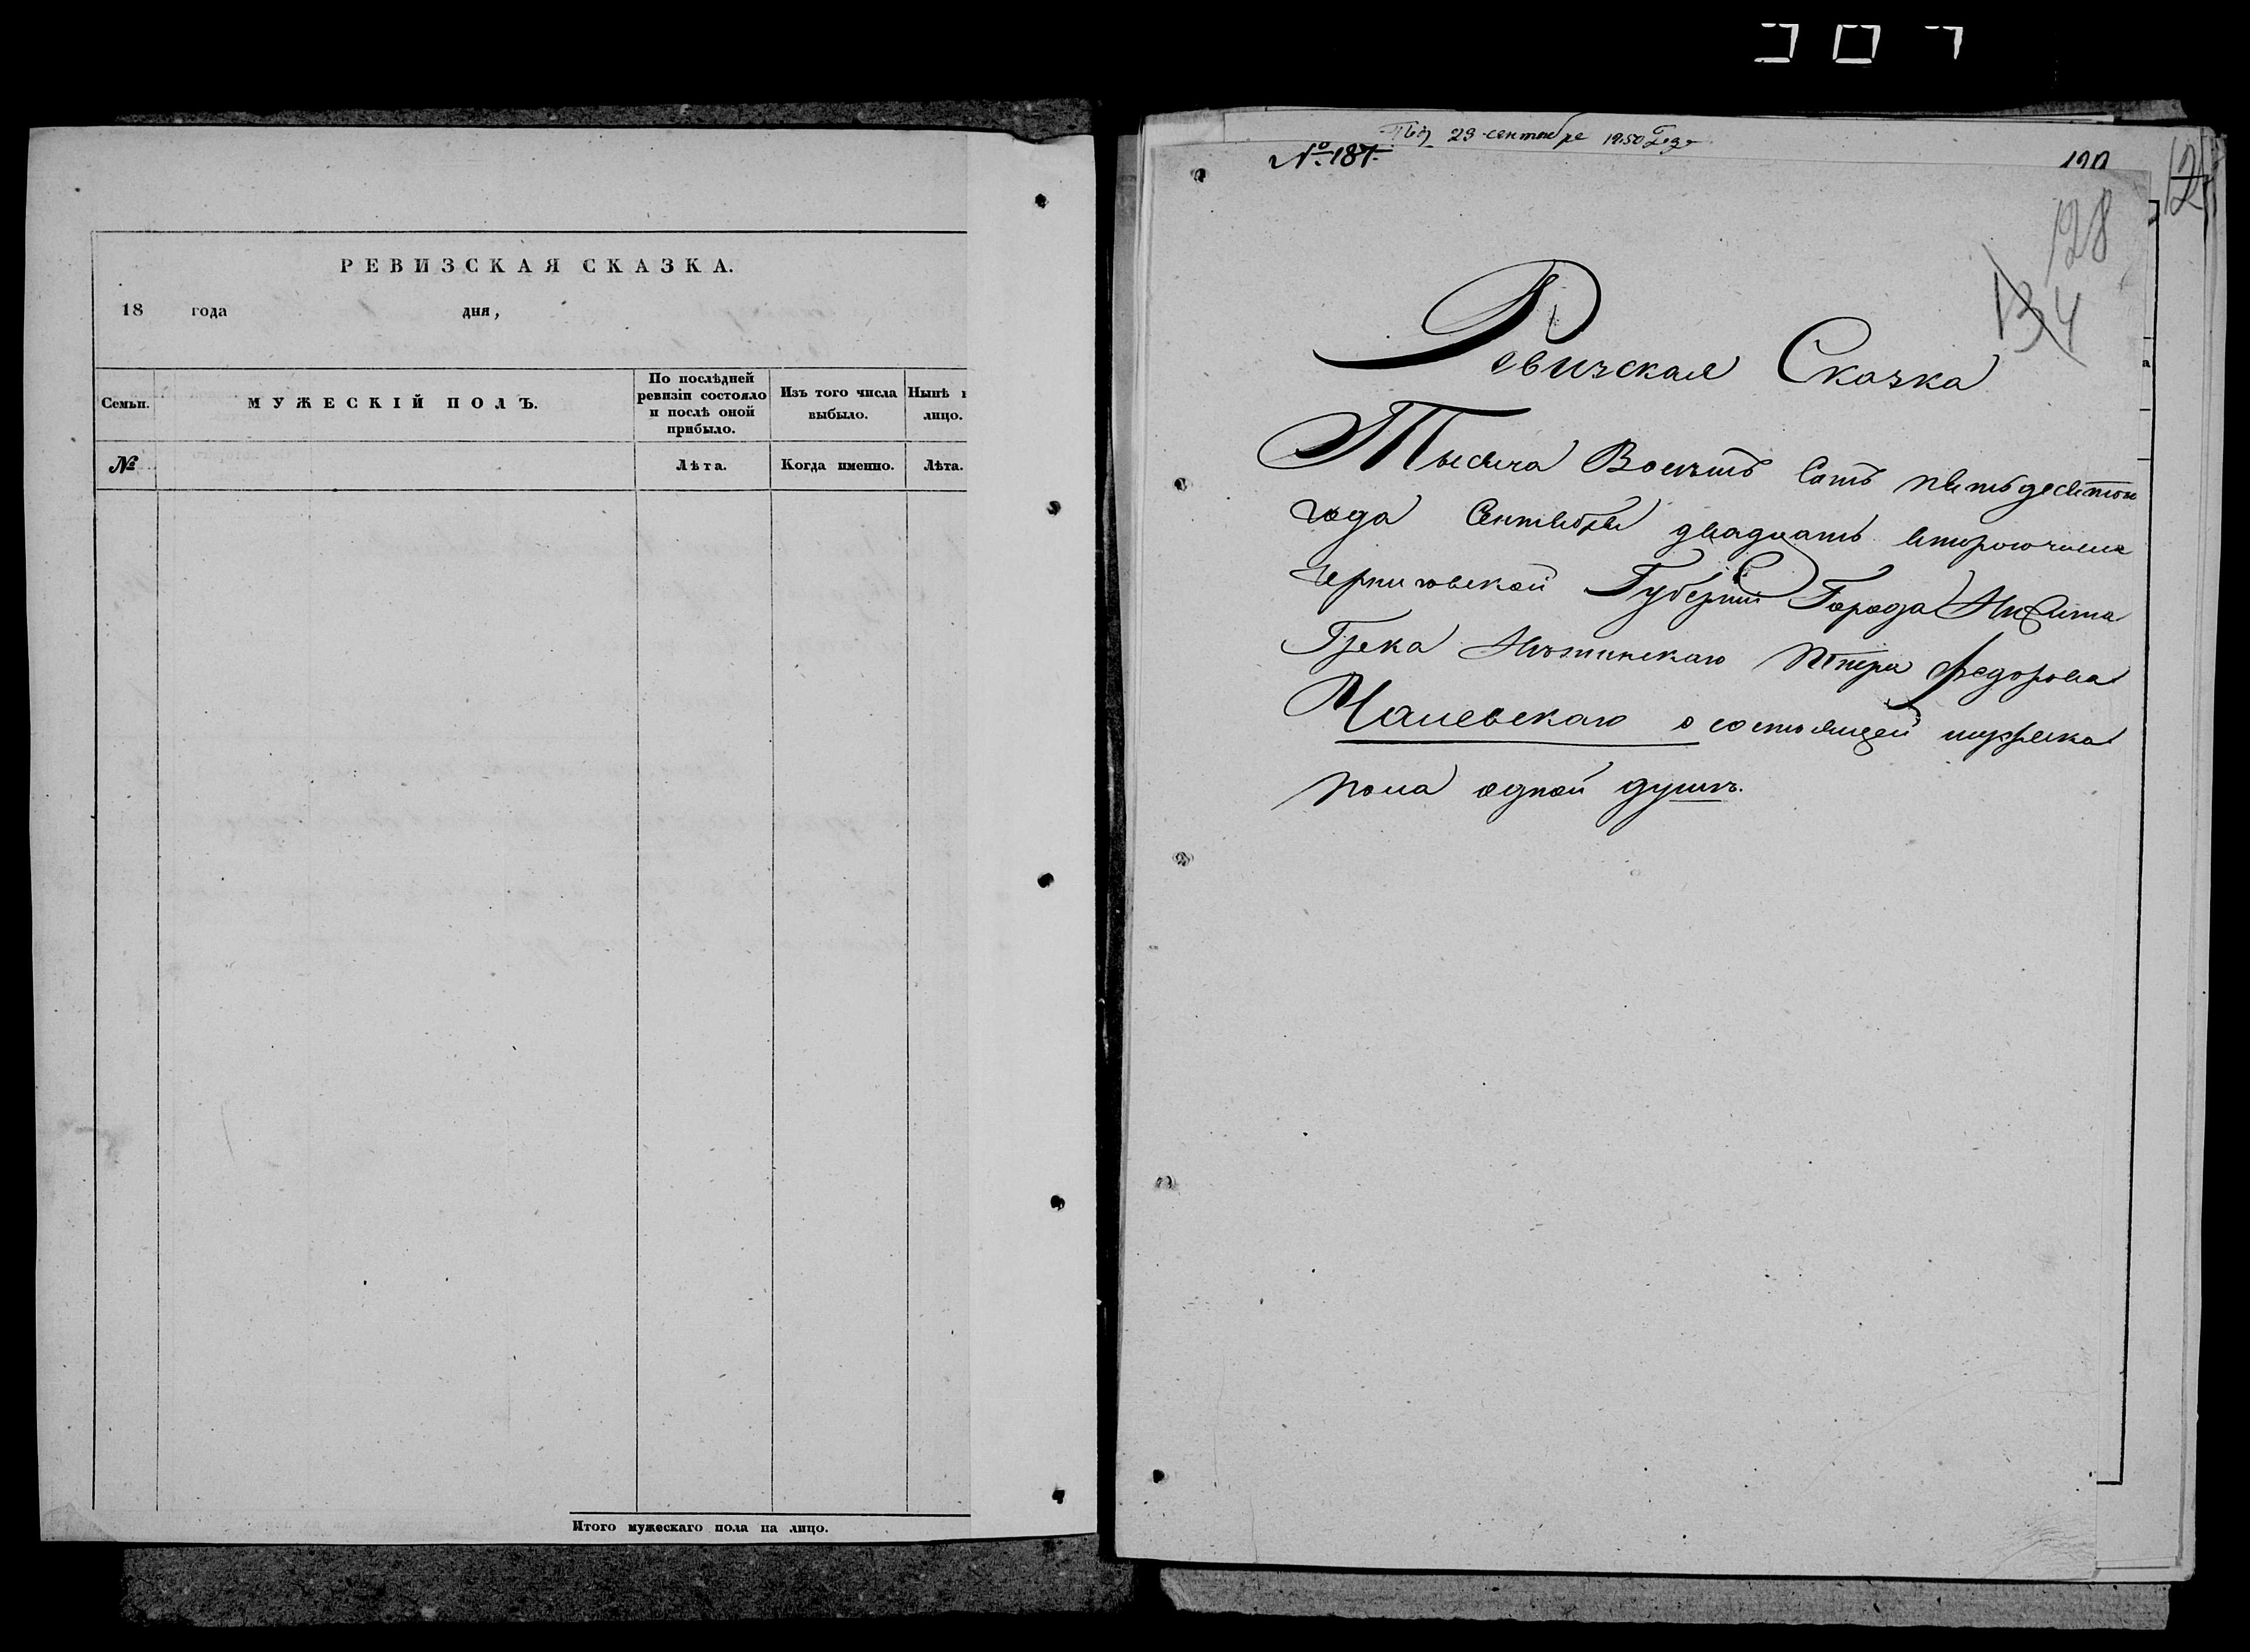 РЕВИЗСКАЯ СКАЗКА.
18 года дня,
Семьи. МУЖЕСКІЙ ПОЛЪ. По послѣдней ревизіи состояло и послѣ оной прибыло. Изъ того числа выбыло. Нынѣ н лицо.
№ Лѣта. Когда именно. Лѣта.
Итого мужескаго пола на лицо.
29 сентября 1850 года
№ 187.
128
134
Ревизская Сказка
Тысяча Восемъ Сотъ пятьдесятого
года Сентября двадцать второго числа
Черниговской Губерніи Города Нѣжина
Грека Нѣжинскаго Петра Федорова
о состоящей мужеска
пола одной душѣ.